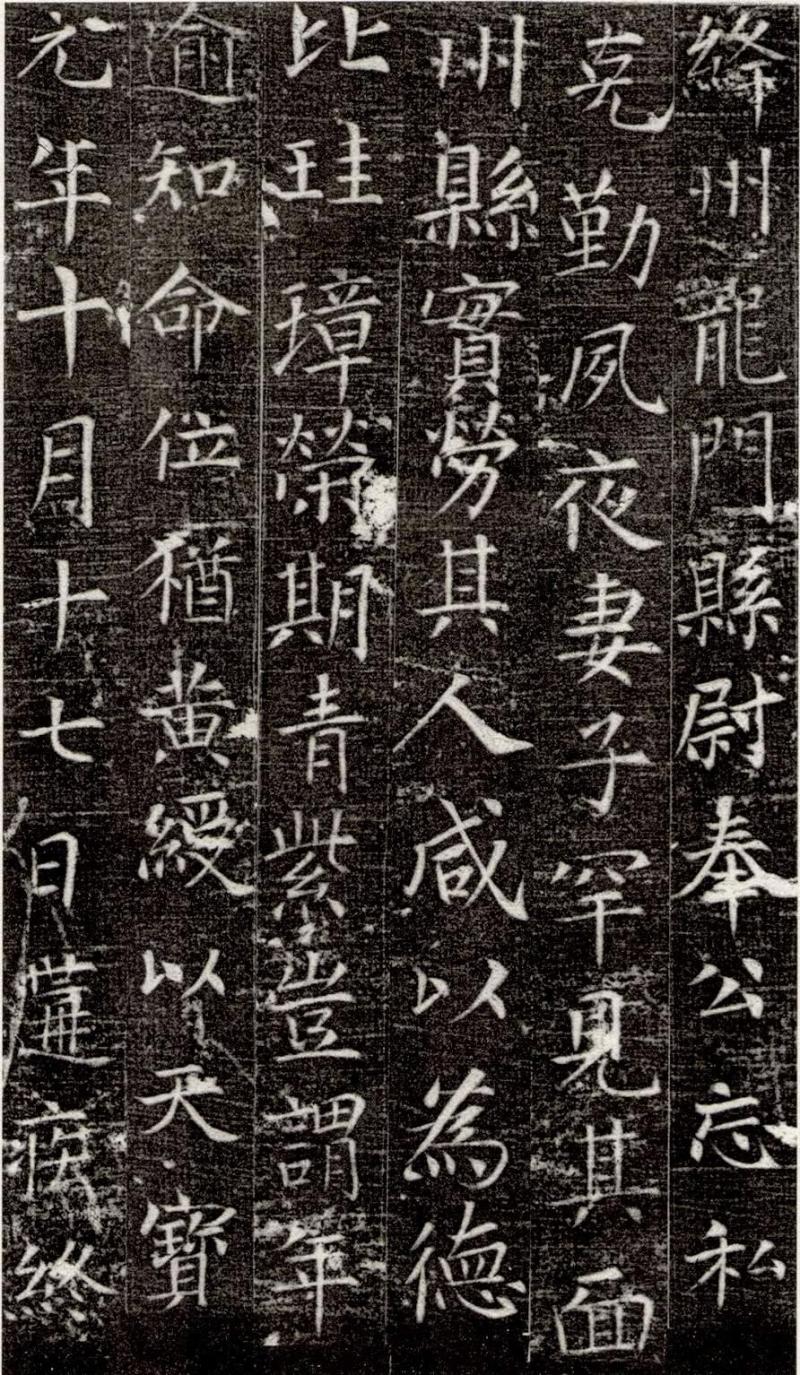 絳州龍門縣尉奉公忘私
克勤夙夜妻子罕見其面
州縣實勞其人咸以為德
比珪璋榮期青紫豈謂年
逾知命位猶黃綬以天寶
元年十月十七日遘疾終